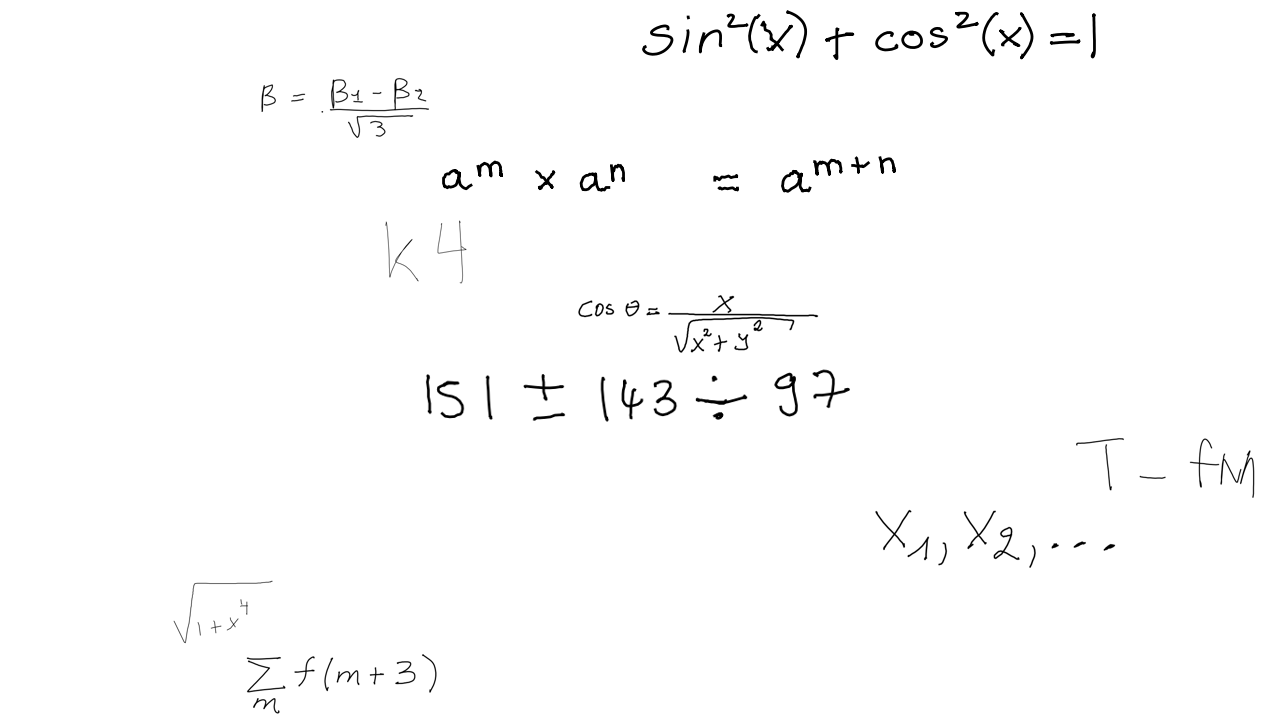 sin²(x) + cos²(x) = 1
β = (β₁ - β₂)/√3
aᵐ × aⁿ = aᵐ⁺ⁿ
k 4
cos θ = x/√(x² + y²)
151 ± 143 ÷ 97
T - fM
X₁, X₂, ...
√(1 + x⁴)
∑ₘ f(m + 3)